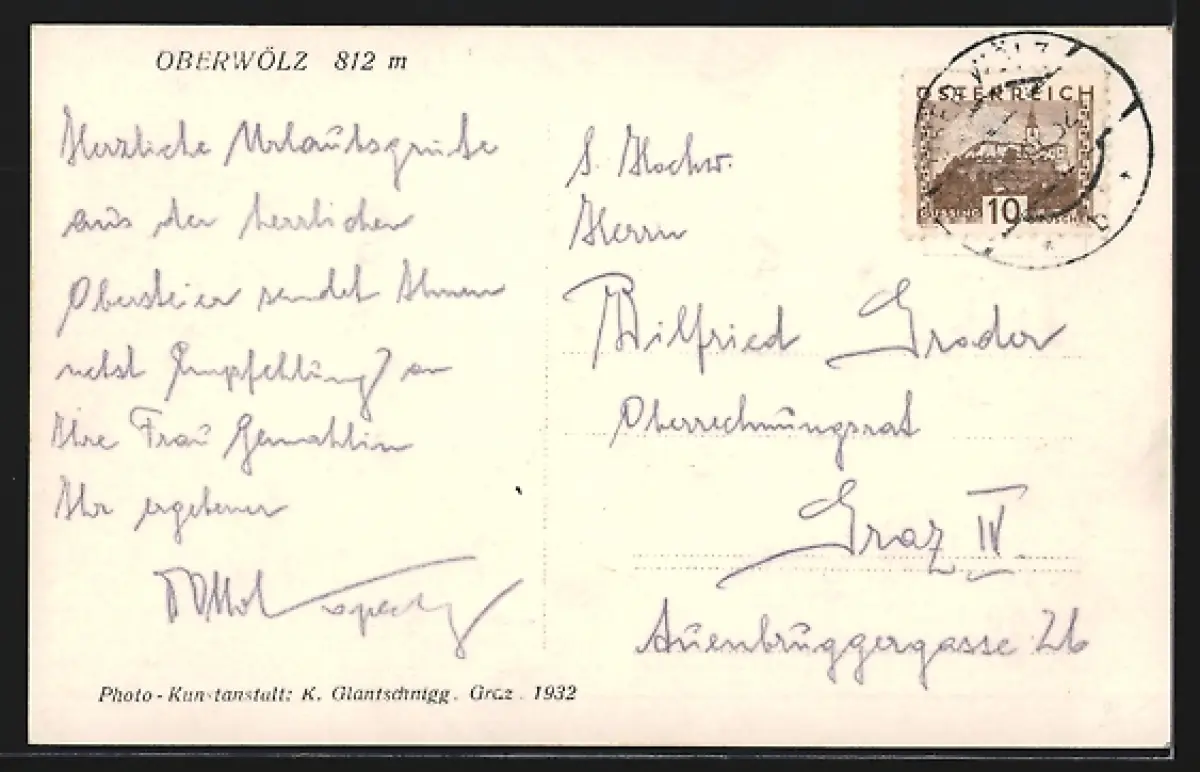 OBERWÖLZ 812 m
Herzliche Urlaubsgrüße
aus der herrlichen
Obersteier sendet Ihnen
nebst Empfehlung an
Ihre Frau Gemahlin
Ihr ergebener
Photo-Kunstanstalt: K. Glantschnigg. Graz. 1932
ÖSTERREICH
GÜSSING 10 GROSCHEN
S. Hochw.
Herrn
Wilfried Grader
Oberrechnungsrat
Graz IV.
Auenbruggergasse 26